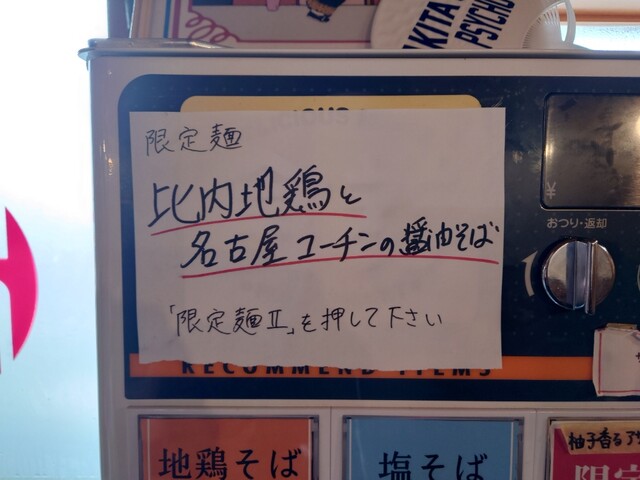 AKITA
PSYCHO
限定麺
比内地鶏と
名古屋コーチンの醤油そば
「限定麺Ⅱ」を押して下さい
¥
おつり・返却
RECOMMEND ITEMS
地鶏そば
塩そば
柚子香る
限定